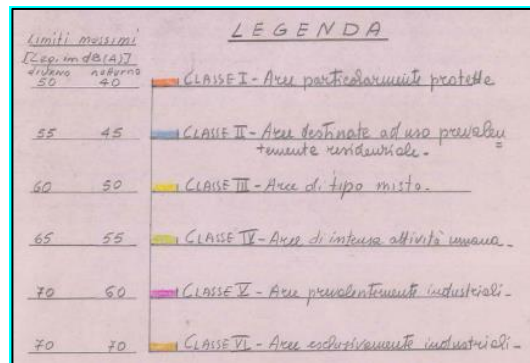 LEGENDA
Limiti massimi
[Leq in dB(A)]
diurno notturno
50 40 CLASSE I - Aree particolarmente protette
55 45 CLASSE II - Aree destinate ad uso prevalen
temente residenziale.
60 50 CLASSE III - Aree di tipo misto.
65 55 CLASSE IV - Aree di intensa attività umana.
70 60 CLASSE V - Aree prevalentemente industriali-
70 70 CLASSE VI - Aree esclusivamente industriali-